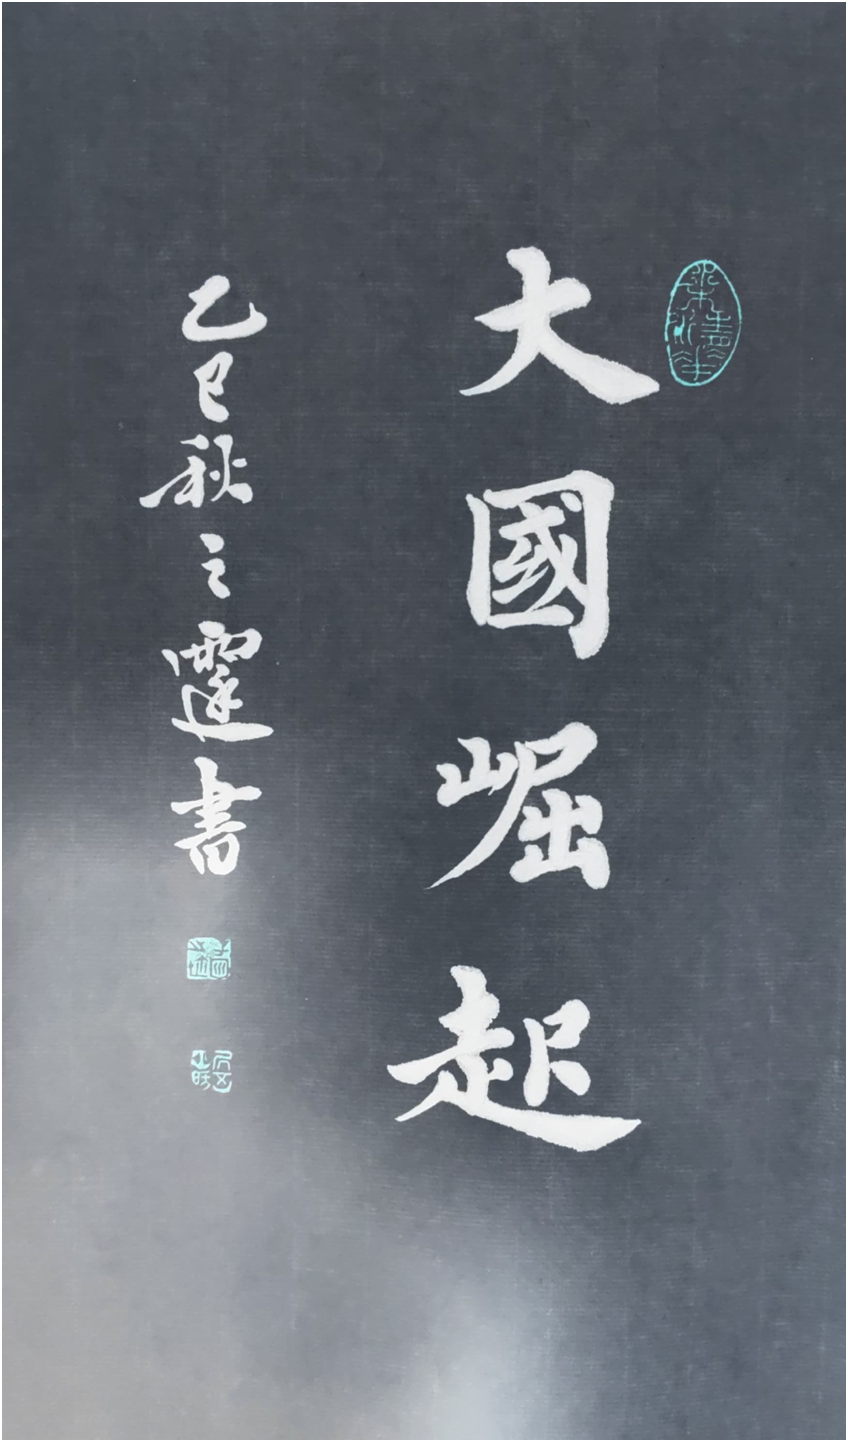 大國崛起
乙巳秋之霆書